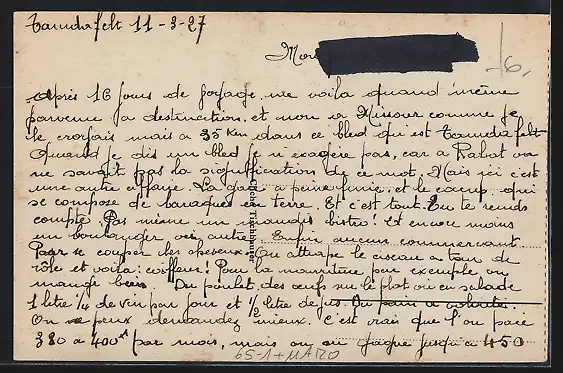 Tamdafelt 11-3-27
Mon
16,
Après 16 jours de voyage me voila quand même
parvenue a destination. et non a Missour comme je
le croyais mais a 35 Km dans ce bled qui est Tamdafelt
Quand je dis un bled je n'exagère pas, car a Rabat on
ne savait pas la signification de ce mot, Mais ici c'est
une autre affaire. La gare a peine finie. et le camp qui
se compose de baraques en terre. Et c'est tout. Tu te rends
compte. Pas même un mauvais bistro! et encore moins
un boulanger ou autre Enfin aucun commercant.
Pour se couper les cheveux. On attrape le ciseau a tour de
rôle et voila: coiffeur! Pour la nourriture par exemple on
mange bien. Du poulet, des œufs sur le plat ou en salade
1 litre 1/4 de vin par jour et 1/2 litre de jus. Du pain a volonté.
On ne peux demandez mieux. C'est vrai que l'on paie
380 a 400 par mois, mais on gagne jusqu'a 450
65-1+MARO
Cliché